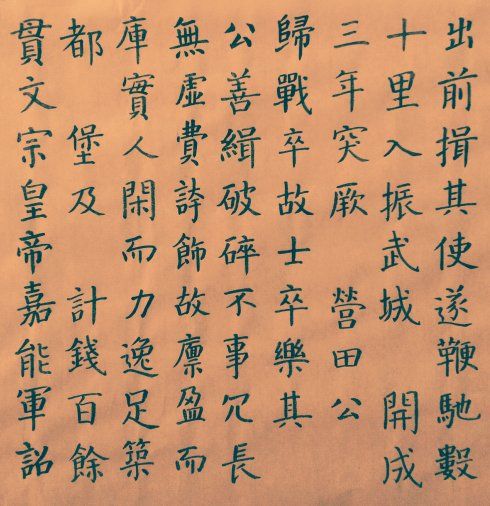 出前揖其使遂鞭馳數
十里入振武城 開成
三年突厥 營田公
歸戰卒故士卒樂其
公善緝破碎不事冗長
無虛費誇飾故廩盈而
庫實人閑而力逸足築
都 堡及 計錢百餘
貫文宗皇帝嘉能軍詔